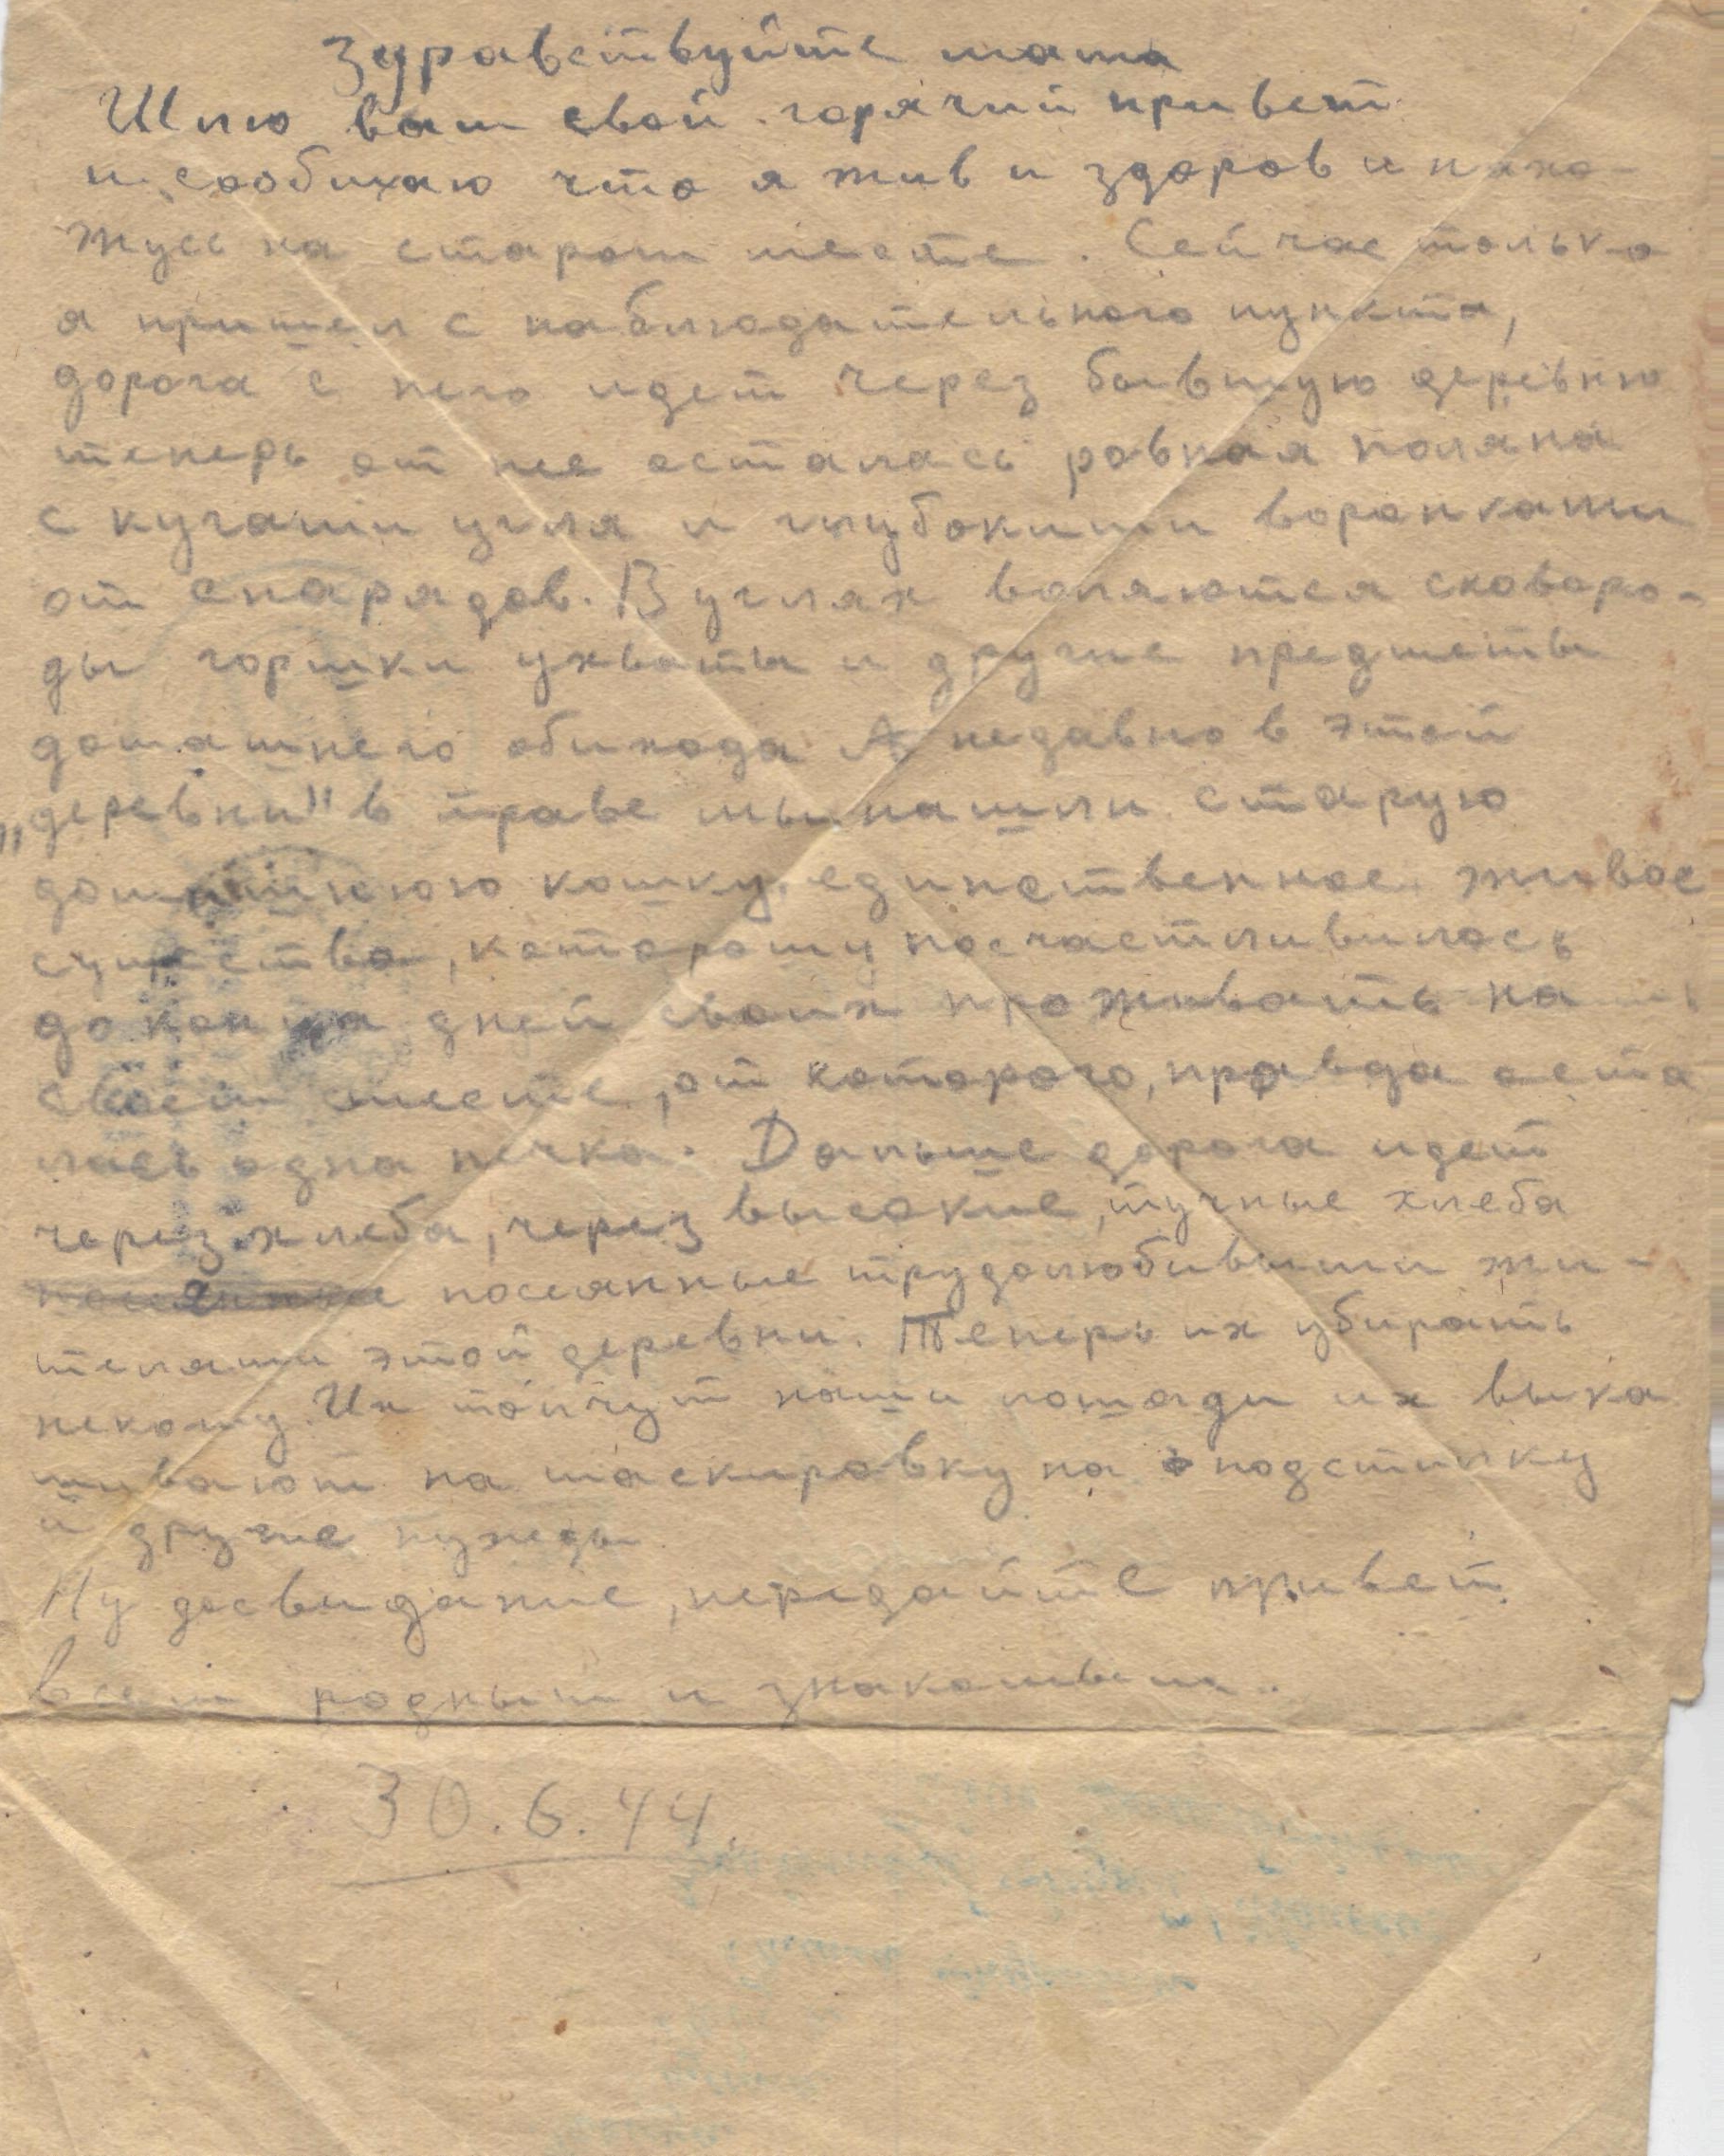 Здравствуйте мама
Шлю вам свой горячий привет
и сообщаю что я жив и здоров и нахо-
жусь на старом месте. Сейчас только
я пришел с наблюдательного пункта,
дорога с него идет через бывшую деревню
теперь от нее осталась ровная поляна
с кучами угля и глубокими воронками
от снарядов. В углях валяются сковоро-
ды горшки ухваты и другие предметы
домашнего обихода А недавно в этой
„деревни" в траве мы нашли старую
домашнюю кошку, единственное живое
существо, которому посчастливилось
до конца дней своих проживать на
своем месте, от которого, правда оста
лась одна печка. Дальше дорога идет
через хлеба, через высокие, тучные хлеба
посеянные трудолюбивыми жи-
телями этой деревни. Теперь их убирать
некому. Их топчут наши лошади их выка
шивают на маскировку на подстилку
и другие нужды
Ну досвидание, передайте привет
всем родным и знакомым..
30.6.44.